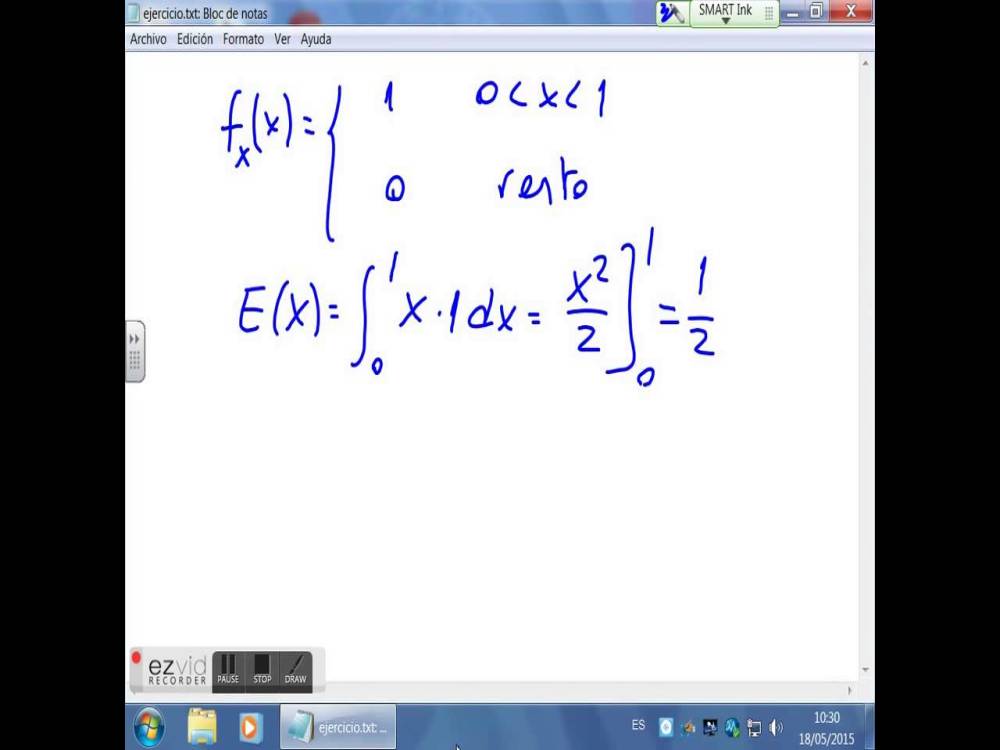 ejercicio.txt: Bloc de notas
SMART Ink
Archivo Edición Formato Ver Ayuda
f_x(x) = { 1 0 < x < 1
0 resto
E(X) = ∫₀¹ x · 1 dx = x²/2 ]₀¹ = 1/2
ezvid
RECORDER
PAUSE STOP DRAW
ejercicio.txt: ...
ES
10:30
18/05/2015